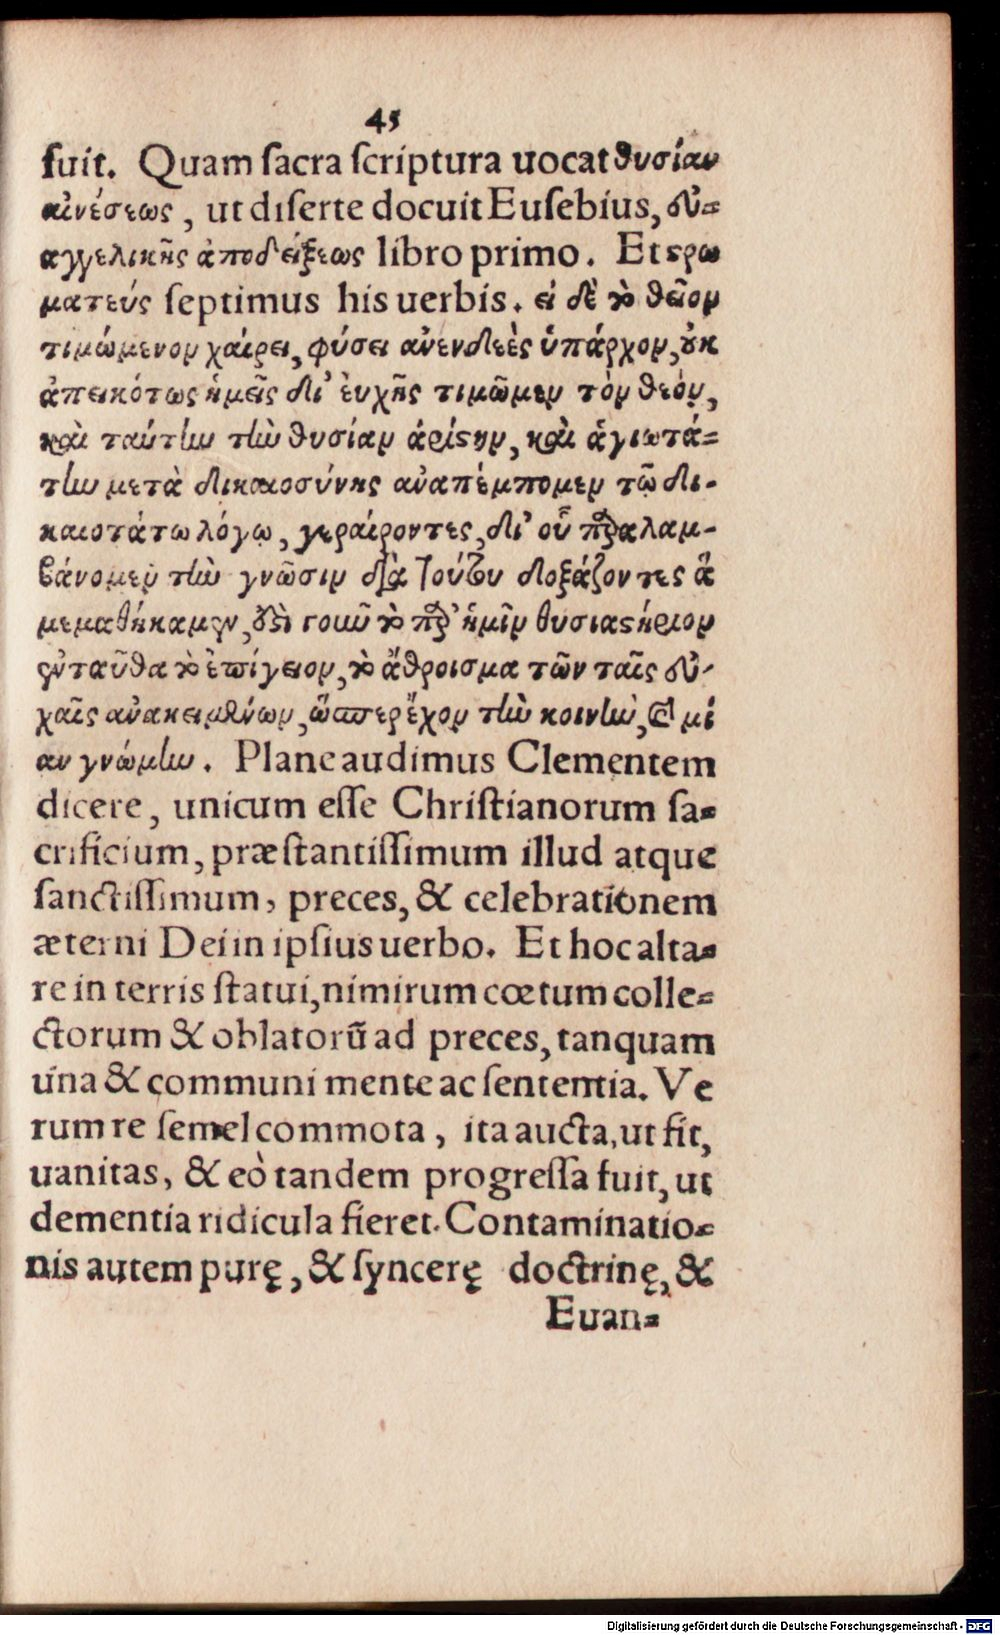 45
fuit. Quam ſacra ſcriptura uocat θυσίαν
αἰνέσεως, ut diſerte docuit Euſebius, εὐ⸗
αγγελικῆς ἀποδείξεως libro primo. Et ςρω
ματεύς ſeptimus his uerbis. εἰ δὲ τὸ θεῖον
τιμώμενον χαίρει, φύσει ἀνενδεὲς ὑπάρχον, οὐκ
ἀπεικότως ἡμεῖς δι' ἐυχῆς τιμῶμεν τὸν θεόν,
καὶ ταύτην τὴν θυσίαν ἀρίςην, καὶ ἁγιωτά⸗
την μετὰ δικαιοσύνης ἀναπέμπομεν τῷ δι-
καιοτάτω λόγῳ, γεραίροντες, δι' οὗ παραλαμ-
βάνομεν τὴν γνῶσιν διὰ τούτου δοξάζοντες ἃ
μεμαθήκαμεν, ἔςι γοιυῦ τὸ παρ' ἡμῖν θυσιαςήριον
ἐνταῦθα τὸ ἐπίγειον, τὸ ἄθροισμα τῶν ταῖς εὐ-
χαῖς ἀνακειμένων, ὥσπερ ἔχον τὴν κοινὴν, καὶ μί
αν γνώμην. Plane audimus Clementem
dicere, unicum eſſe Chriſtianorum ſa⸗
crificium, præſtantiſſimum illud atque
ſanctiſſimum, preces, & celebrationem
æterni Dei in ipſius uerbo. Et hoc alta⸗
re in terris ſtatui, nimirum cœtum colle⸗
ctorum & oblatorũ ad preces, tanquam
una & communi mente ac ſententia. Ve
rum re ſemel commota, ita aucta, ut fit,
uanitas, & eò tandem progreſſa fuit, ut
dementia ridicula fieret. Contaminatio⸗
nis autem purę, & ſyncerę doctrinę, &
Euan⸗
Digitalisierung gefördert durch die Deutsche Forschungsgemeinschaft - DFG